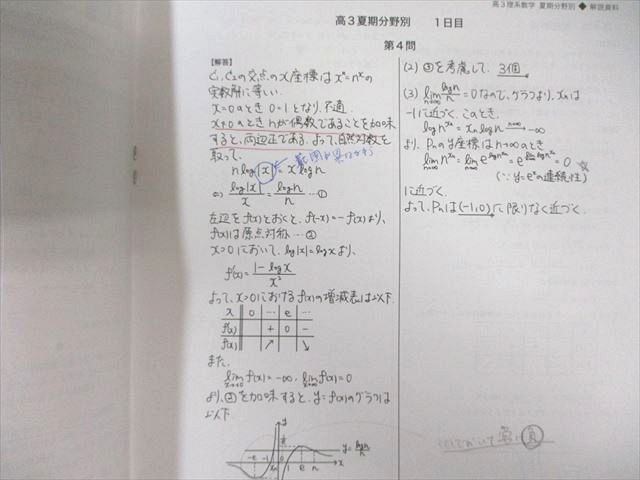 高3理系数学 夏期分野別 ◆ 解説資料
高3夏期分野別 1日目
第4問
【解答】
C₁, C₂の交点のx座標は xⁿ=nˣの
実数解に等しい.
x=0のとき 0=1となり, 不適.
x≠0のとき nが偶数であることを加味
すると, 両辺正である. よって, 自然対数を
取って,
n log|x| = x log n
⇔ log|x|/x = log n/n …①
左辺をf(x)とおくと, f(-x)=-f(x)より,
f(x)は原点対称 …②
x>0において, log|x|=log xより,
f'(x)= (1-log x)/x²
よって, x>0におけるf(x)の増減表は以下.
x 0 … e …
f'(x) + 0 -
f(x) ↗ ↘
また,
lim x→+0 f(x)=-∞, lim x→∞ f(x)=0
より, ②を加味すると, y=f(x)のグラフは
以下.
y
y= log n/n
-e -1 xₙ 0 1 e n x
(2) ③を考慮して, 3個
(3) lim n→∞ log n/n = 0なので, グラフより, xₙは
-1に近づく. このとき,
log n^xₙ = xₙ log n → -∞
より, Pₙのy座標は n→∞のとき
lim n→∞ n^xₙ = lim n→∞ e^(log n^xₙ) = e^(lim n→∞ log n^xₙ) = 0
(∵ y=eˣの連続性)
に近づく.
よって, Pₙは(-1,0)に限りなく近づく.